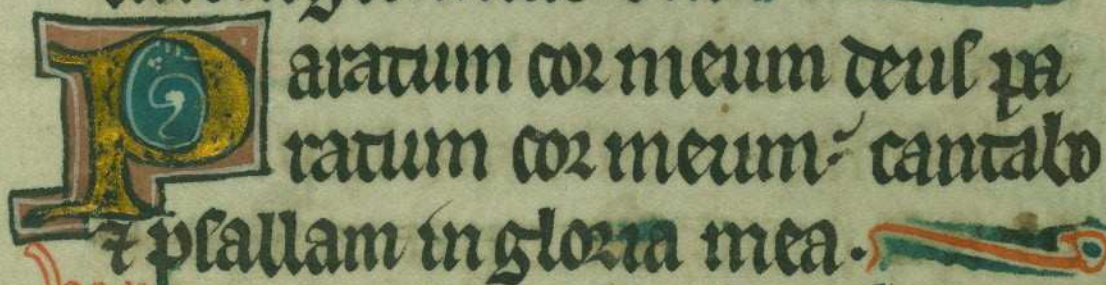 Paratum cor meum deus pa
ratum cor meum: cantabo
⁊ psallam in gloria mea.